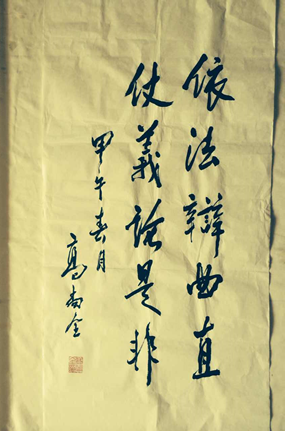 依法辩曲直
仗義论是非
甲午春月
高尚全